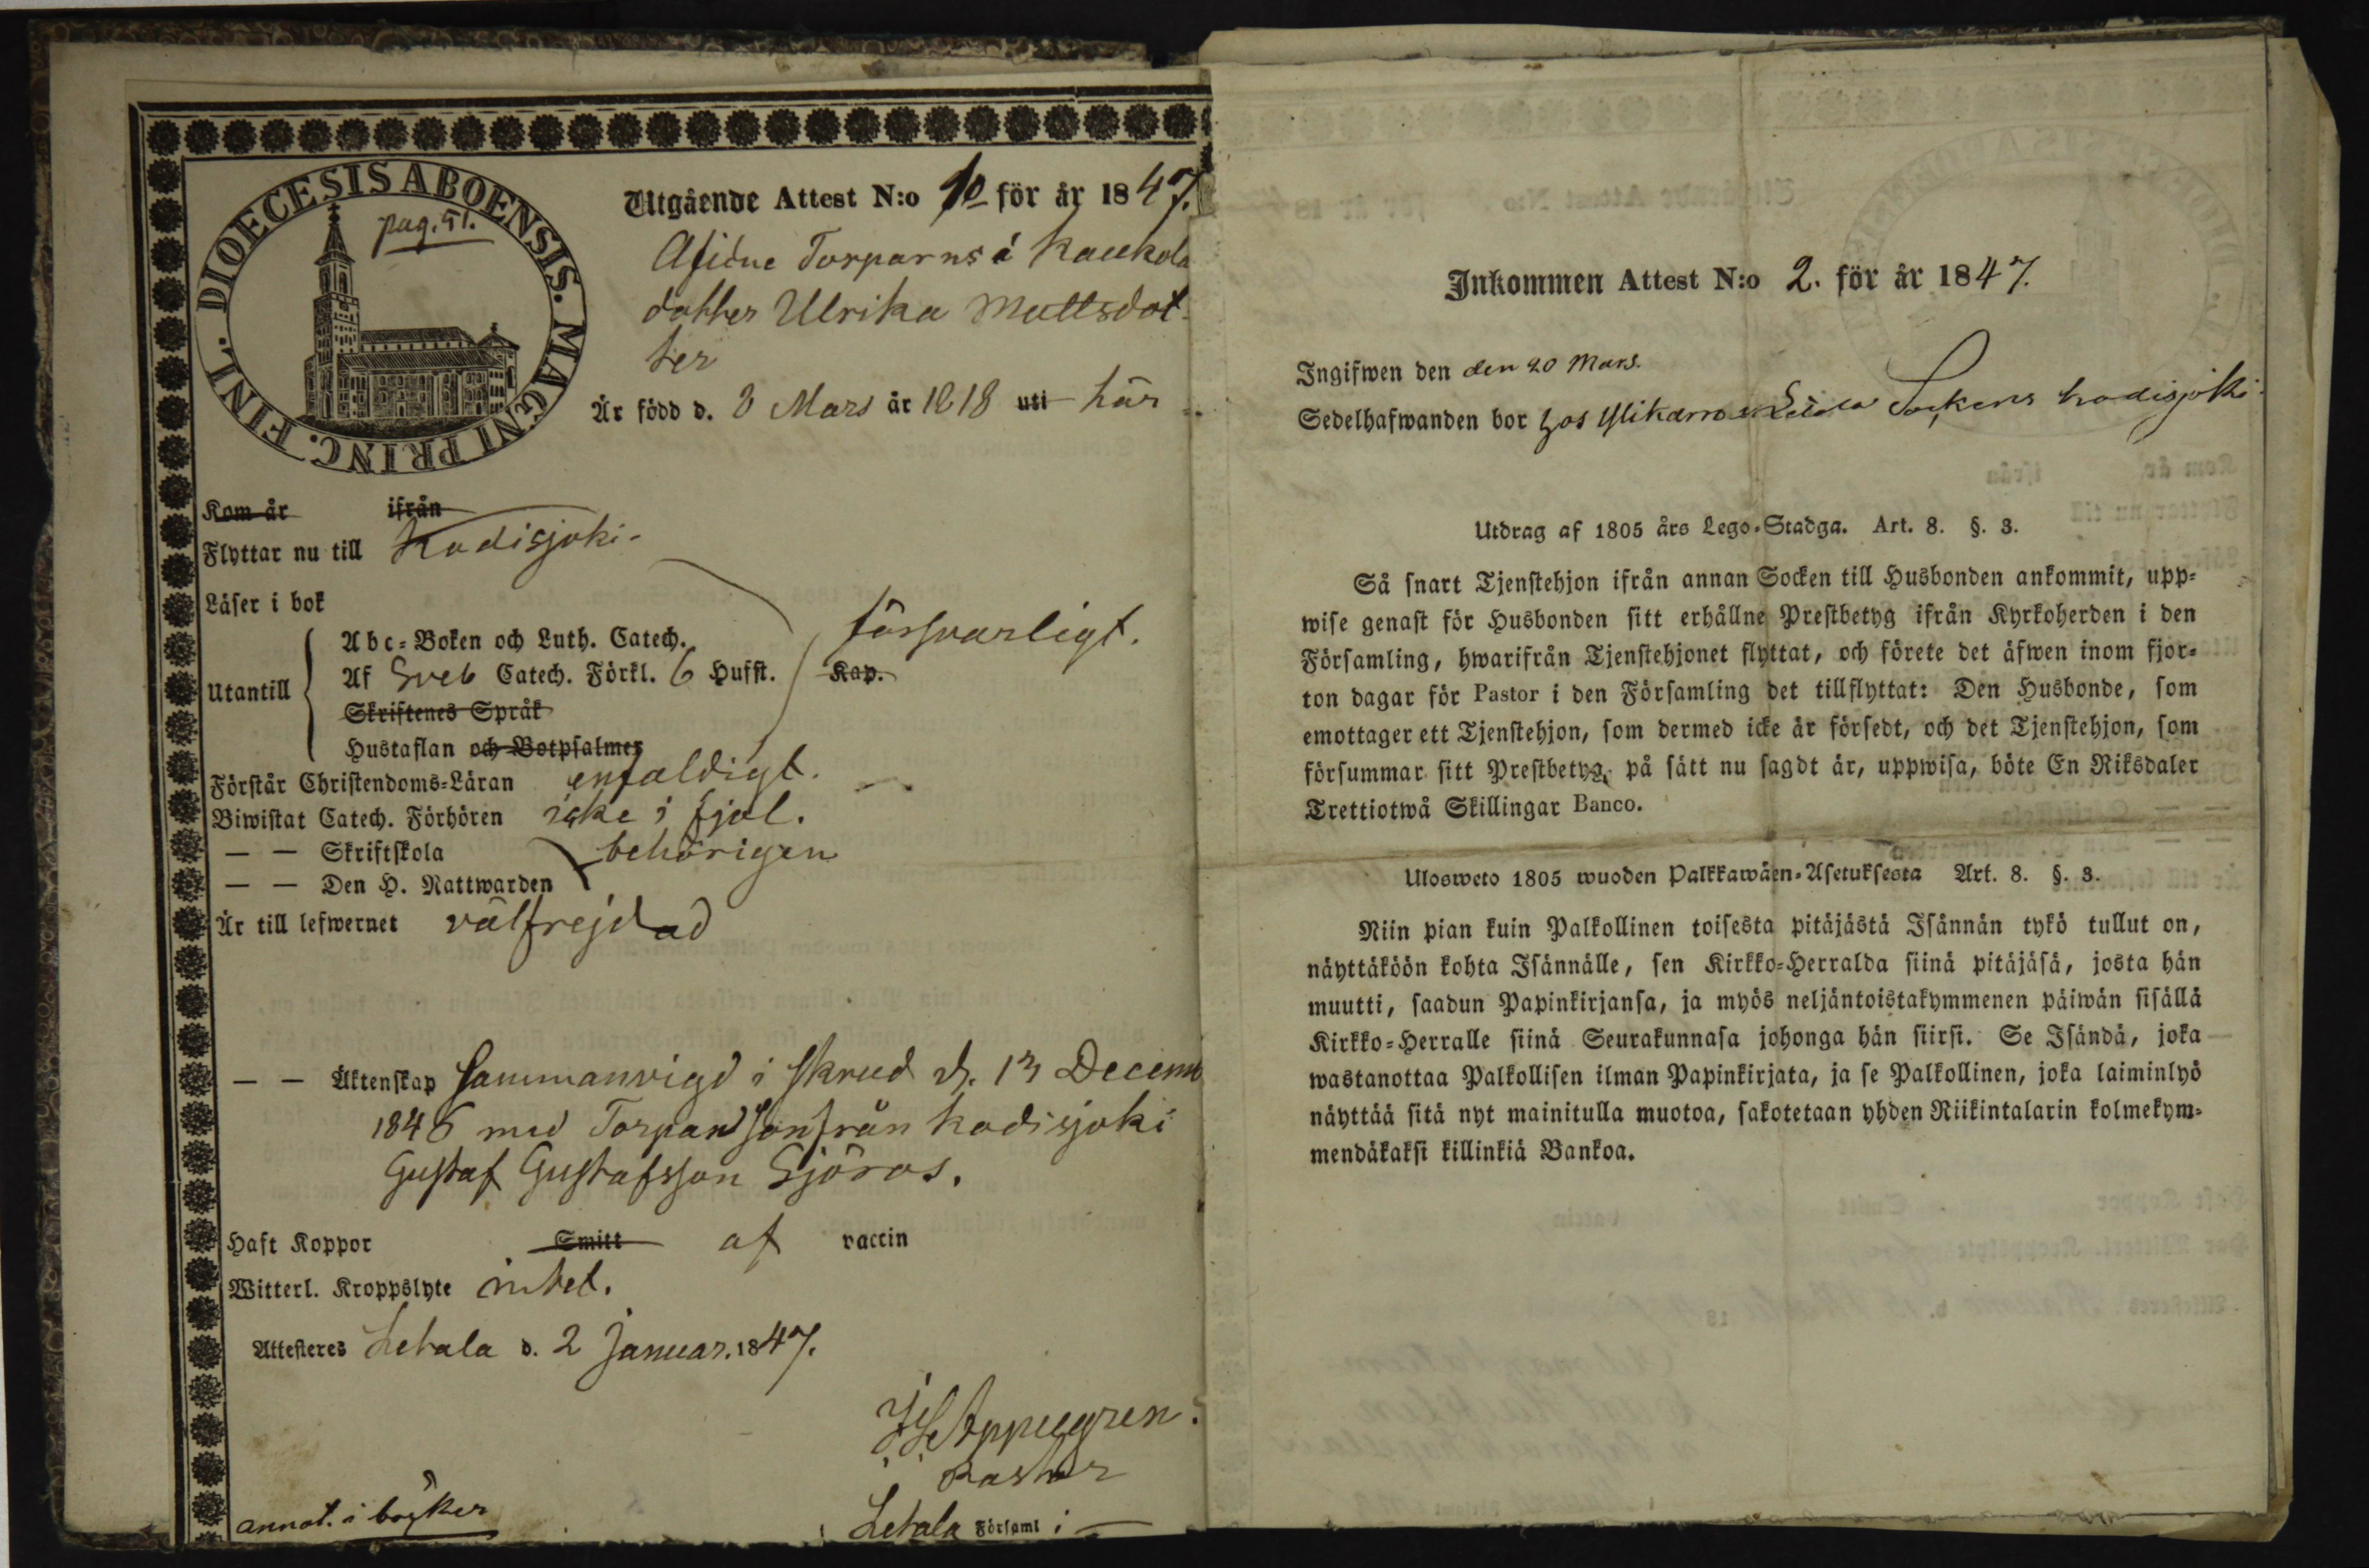 DIOECESIS ABOENSIS. MAGNI PRINC. FINL.
pag. 51.
Utgående Attest N:o 10 för år 1847.
Afidne Torparns i Kaukola
dotter Ulrika Mattsdot-
ter
Är född d. 3 Mars år 1818 uti här
Kom år ifrån
Flyttar nu till Kodisjoki.
Läser i bok
försvarligt.
Utantill
Abc-Boken och Luth. Catech.
Af Sveb Catech. Förkl. 6 Hufst. Kap.
Skriftenes Språk
Hustaflan och Botpsalmer
Förstår Christendoms-Läran enfaldigt.
Biwistat Catech. Förhören icke i fjol.
— — Skriftskola behörigen
— — Den H. Nattwarden
Är till lefwernet välfrejdad
— — Äktenskap Sammanvigd i skrud d. 13 Decemb
1846 med Torpardson från Kodisjoki
Gustaf Gustafsson Sjöros.
Haft Koppor Smitt af vaccin
Witterl. Kroppslyte intet.
Attesteres Letala d. 2 Januar. 1847.
Pastor
annot. i böcker
Letala Församl i —
Inkommen Attest N:o 2. för år 1847.
Ingifwen den den 20 Mars.
Sedelhafwanden bor hos Sockens Kodisjoki.
Utdrag af 1805 års Lego-Stadga. Art. 8. §. 3.
Så snart Tjenstehjon ifrån annan Socken till Husbonden ankommit, upp-
wise genast för Husbonden sitt erhållne Prestbetyg ifrån Kyrkoherden i den
Församling, hwarifrån Tjenstehjonet flyttat, och förete det äfwen inom fjor-
ton dagar för Pastor i den Församling det tillflyttat: Den Husbonde, som
emottager ett Tjenstehjon, som dermed icke är försedt, och det Tjenstehjon, som
försummar sitt Prestbetyg, på sätt nu sagdt är, uppwisa, böte En Riksdaler
Trettiotwå Skillingar Banco.
Ulosweto 1805 wuoden Palkkawäen-Asetuksesta Art. 8. §. 3.
Niin pian kuin Palkollinen toisesta pitäjästä Isännän tykö tullut on,
näyttäköön kohta Isännälle, sen Kirkko-Herralda siinä pitäjäsä, josta hän
muutti, saadun Papinkirjansa, ja myös neljäntoistakymmenen päiwän sisällä
Kirkko-Herralle siinä Seurakunnasa johonga hän siirsi. Se Isändä, joka
wastanottaa Palkollisen ilman Papinkirjata, ja se Palkollinen, joka laiminlyö
näyttää sitä nyt mainitulla muotoa, sakotetaan yhden Riikintalarin kolmekym-
mendäkaksi killinkiä Bankoa.